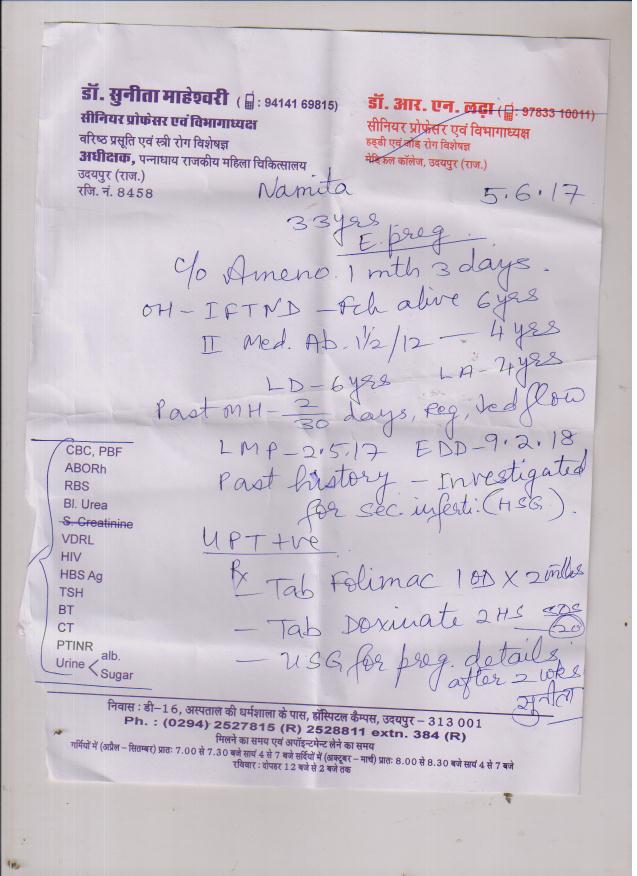 डॉ. सुनीता माहेश्वरी (: 94141 69815)
सीनियर प्रोफेसर एवं विभागाध्यक्ष
वरिष्ठ प्रसूति एवं स्त्री रोग विशेषज्ञ
अधीक्षक, पन्नाधाय राजकीय महिला चिकित्सालय
उदयपुर (राज.)
रजि. नं. 8458
डॉ. आर. एन. लढ़ा (: 97833 10011)
सीनियर प्रोफेसर एवं विभागाध्यक्ष
हड्डी एवं जोड़ रोग विशेषज्ञ
मेडिकल कॉलेज, उदयपुर (राज.)
Namita 5.6.17
33yrs
E. preg.
c/o Ameno. 1 mth 3 days.
OH - I FTND - Fch alive 6yrs
II Med. Ab. 1½/12 — 4 yrs
LD - 6yrs LA - 4yrs
Past MH - 2/30 days, reg, ↓ed flow
LMP - 2.5.17 EDD - 9.2.18
Past history - Investigated
for sec. inferti. (HSG).
UPT +ve
CBC, PBF
ABORh
RBS
Bl. Urea
S. Creatinine
VDRL
HIV
HBS Ag
TSH
BT
CT
PTINR
Urine alb.
Sugar
Rx
- Tab Folimac 1 OD X 2 mths
- Tab Doxinate 2 HS SOS
(20)
- USG for preg. details
after 2 wks.
सुनीता
निवास : डी-16, अस्पताल की धर्मशाला के पास, हॉस्पिटल कैम्पस, उदयपुर - 313 001
Ph. : (0294) 2527815 (R) 2528811 extn. 384 (R)
मिलने का समय एवं अपॉइन्टमेन्ट लेने का समय
गर्मियों में (अप्रैल - सितम्बर) प्रातः 7.00 से 7.30 बजे सायं 4 से 7 बजे सर्दियों में (अक्टूबर - मार्च) प्रातः 8.00 से 8.30 बजे सायं 4 से 7 बजे
रविवार : दोपहर 12 बजे से 2 बजे तक